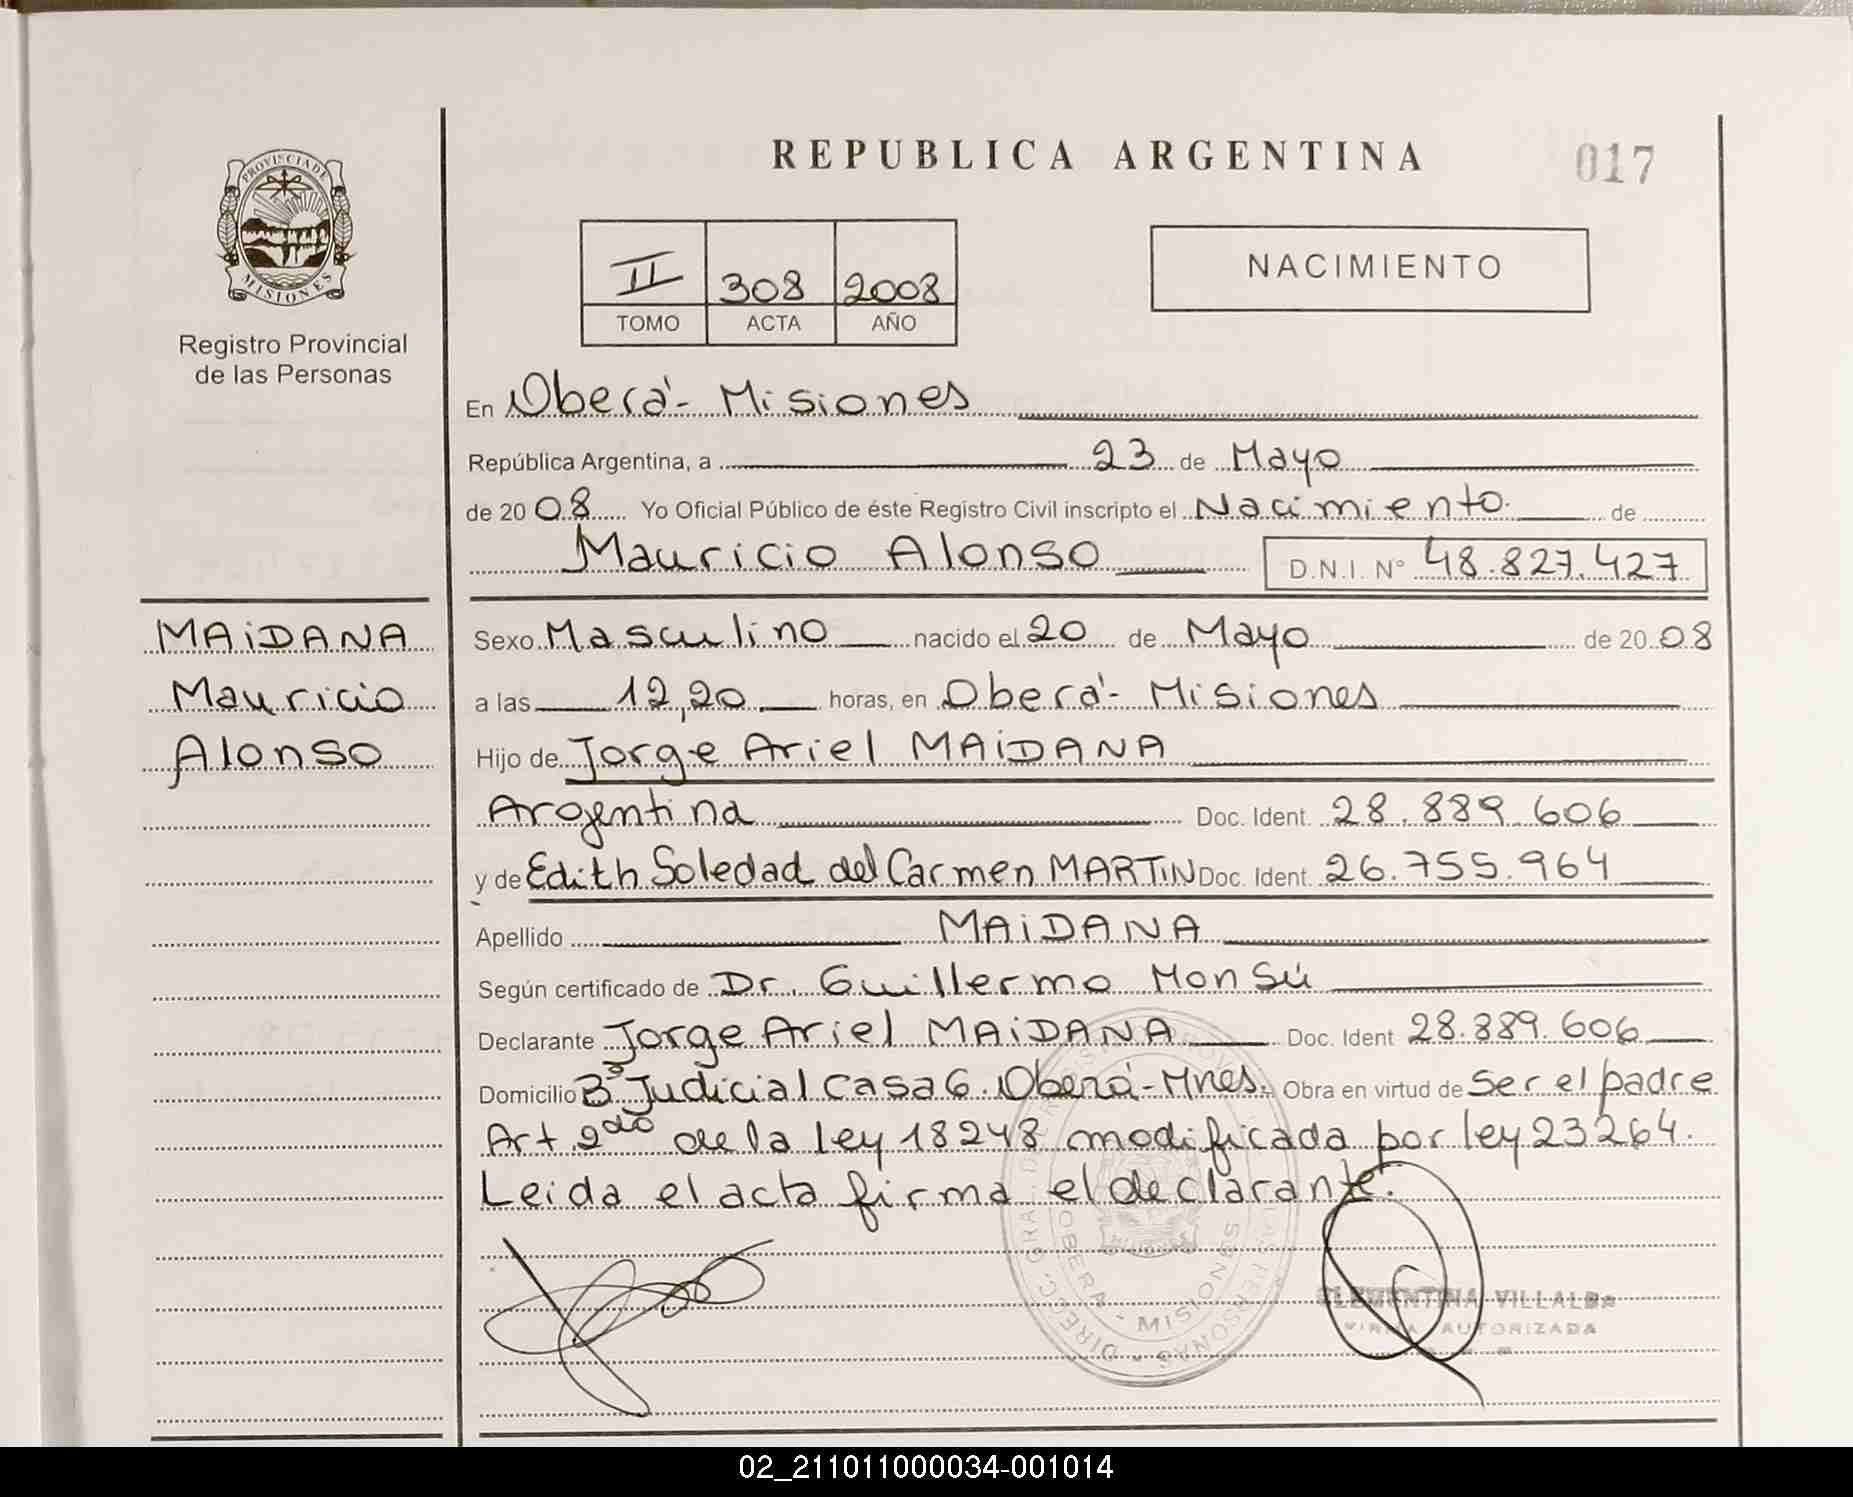 PROVINCIA DE
MISIONES
Registro Provincial
de las Personas
MAIDANA
Mauricio
Alonso
REPUBLICA ARGENTINA
017
II 308 2008
TOMO ACTA AÑO
NACIMIENTO
En Oberá - Misiones
República Argentina, a 23 de Mayo
de 20 08 Yo Oficial Público de éste Registro Civil inscripto el Nacimiento de
Mauricio Alonso D.N.I. Nº 48.827.427
Sexo Masculino nacido el 20 de Mayo de 20 08
a las 12,20 horas, en Oberá - Misiones
Hijo de Jorge Ariel MAIDANA
Argentina Doc. Ident. 28.889.606
y de Edith Soledad del Carmen MARTIN Doc. Ident. 26.755.964
Apellido MAIDANA
Según certificado de Dr. Guillermo Monsú
Declarante Jorge Ariel MAIDANA Doc. Ident 28.889.606
Domicilio Bº Judicial Casa 6. Oberá - Mnes. Obra en virtud de Ser el padre
Art 2do de la ley 18248 modificada por ley 23264.
Leida el acta firma el declarante.
OBERA - MISIONES
CLEMENTINA VILLALBA
FIRMA AUTORIZADA
02_211011000034-001014